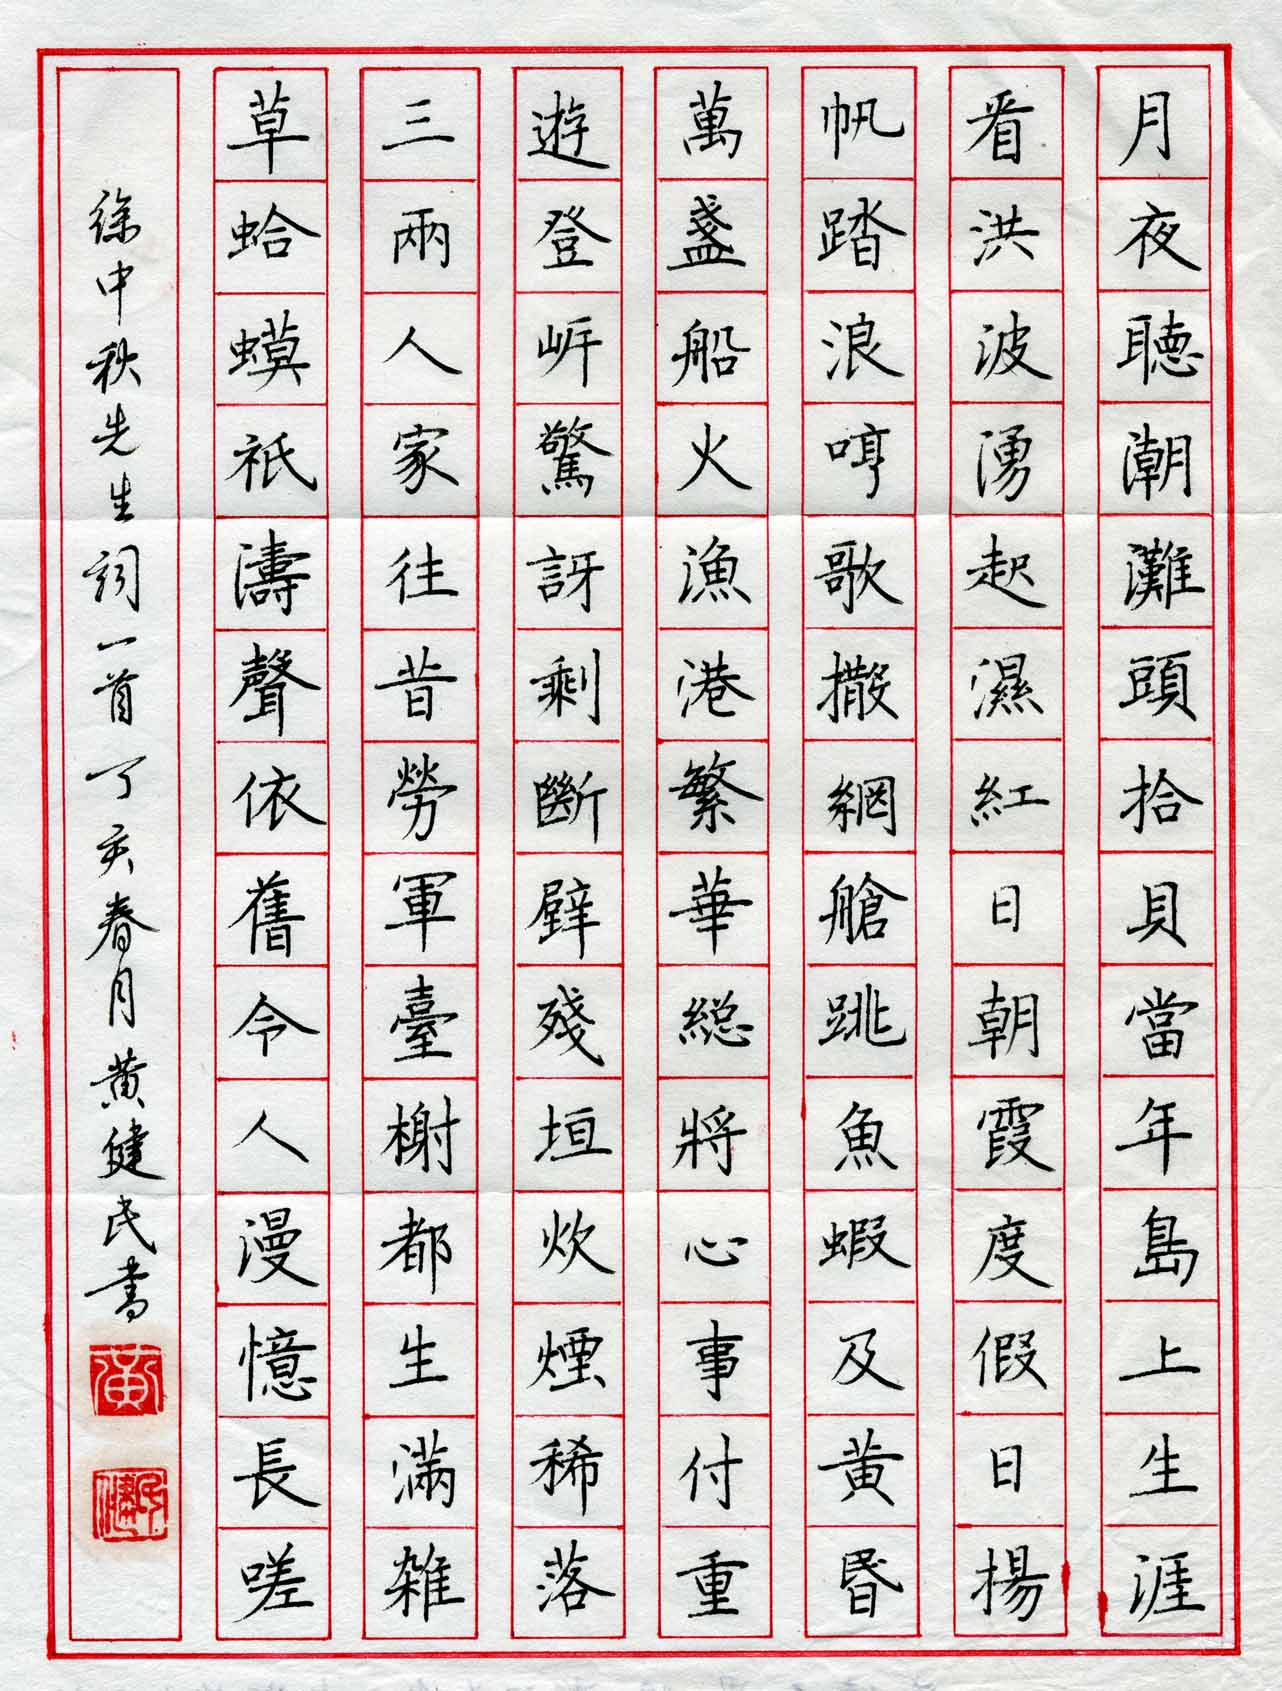 月夜聽潮灘頭拾貝當年島上生涯
看洪波湧起濕紅日朝霞度假日揚
帆踏浪哼歌撒網艙跳魚蝦及黄昏
萬盞船火漁港繁華総將心事付重
遊登岍驚訝剩斷壁殘垣炊煙稀落
三兩人家往昔勞軍臺榭都生滿雜
草蛤蟆祇濤聲依舊令人漫憶長嗟
徐中秋先生詞一首丁亥春月黄健民書
黄
健民